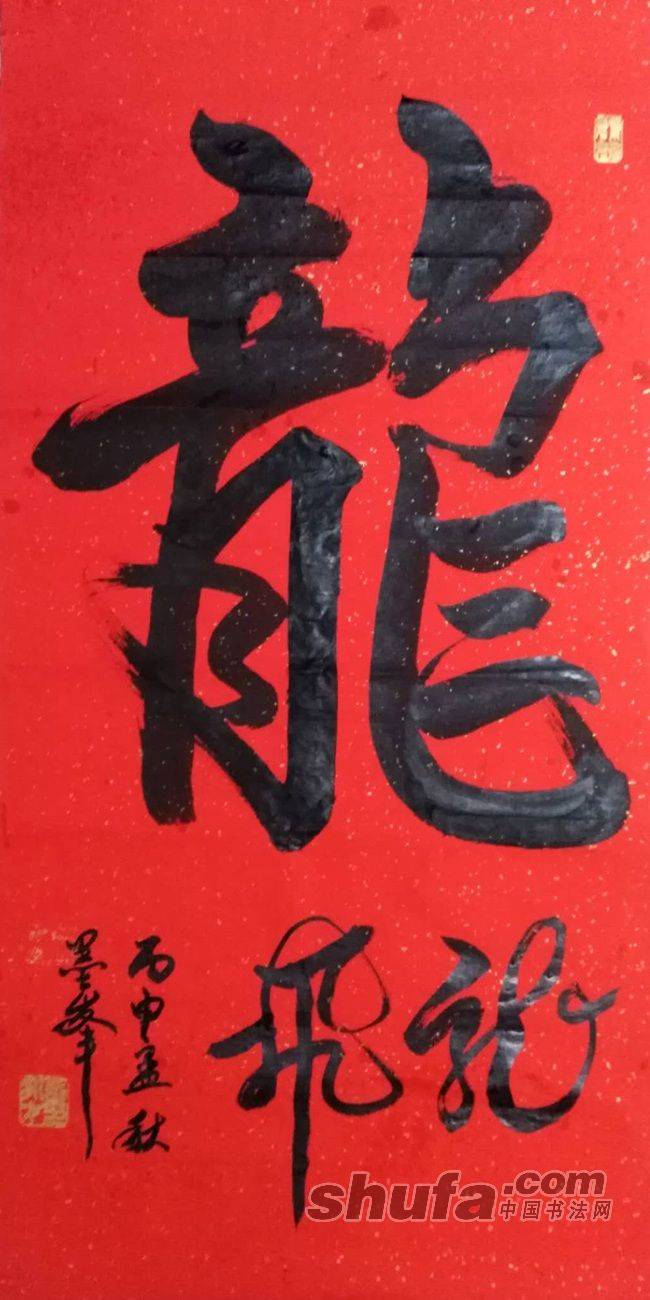 龍
龍飛
丙申孟秋
墨峰
shufa.com
中国书法网